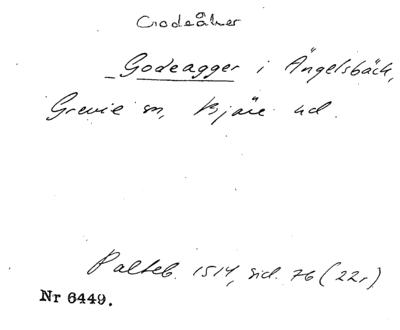 Godeåker
_Godeagger i Ängelsbäck,
Grevie sn, Bjäre hd.
Palteb. 1514, sid. 76 (22r)
Nr 6449.